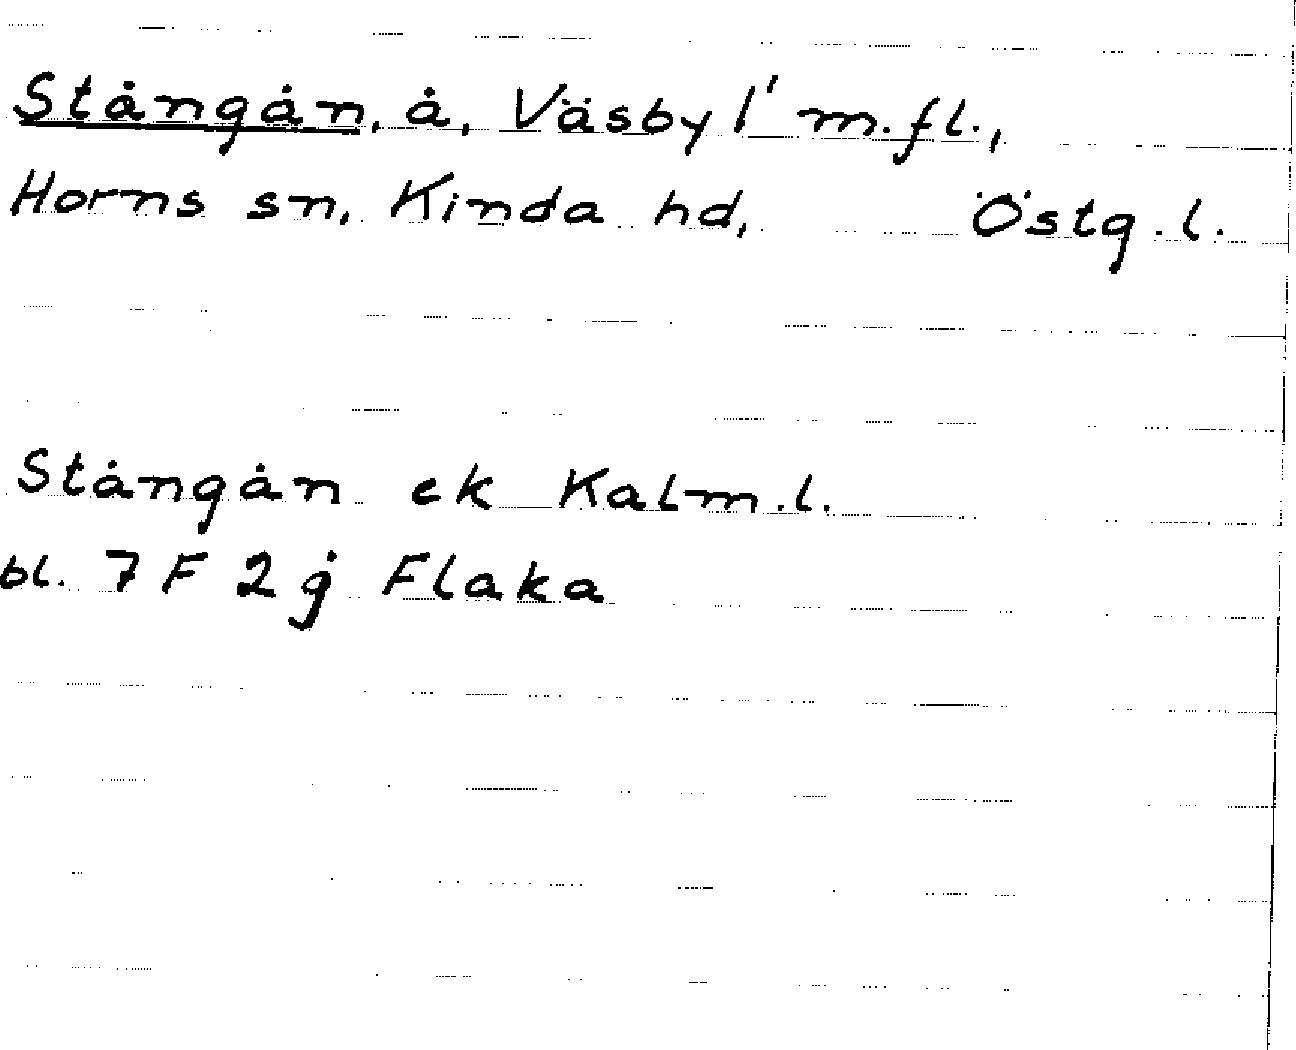 Stångån, å, Väsby 1' m.fl.,
Horns sn, Kinda hd, Östg.l.
Stångån ek Kalm.l.
bl. 7 F 2 g Flaka